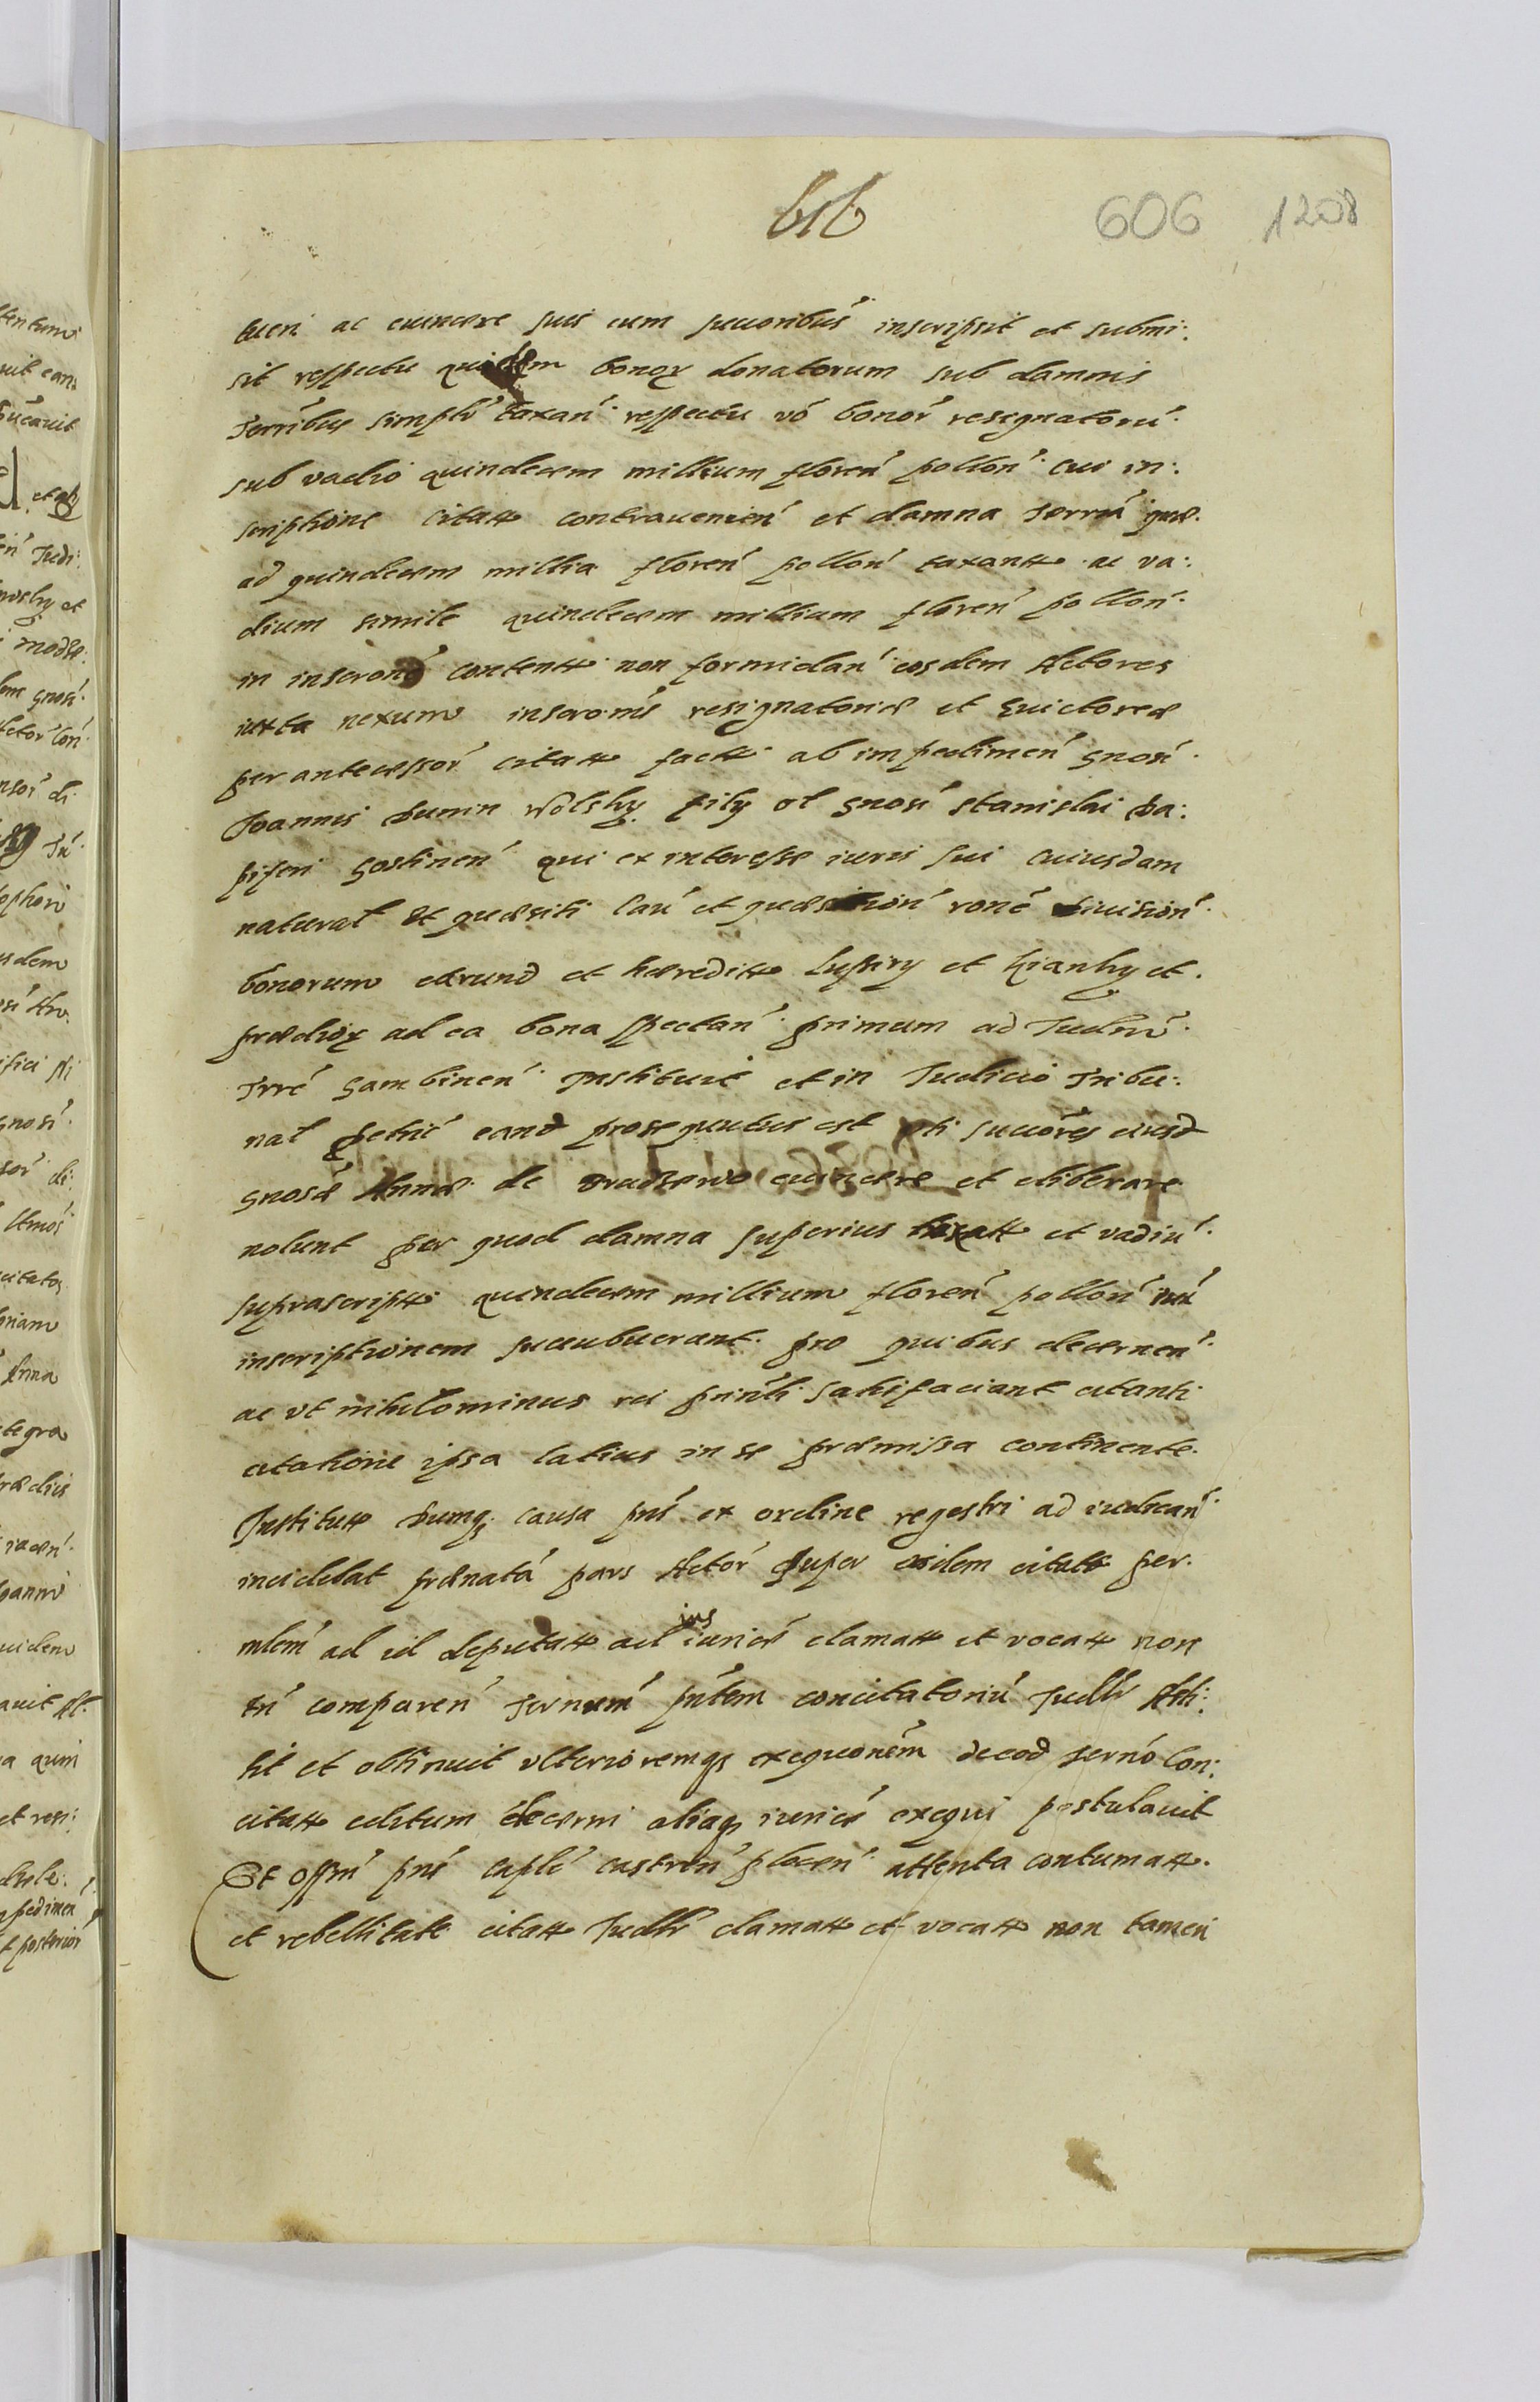 616 606 1208
tueri ac euincere suis cum succoribus inscripsit et submi:
sit respectu quidem bonor donatorum sub damnis
Terribus simplr taxan respectu vo bonor resignatoru
sub vadio quindecem millium floren pollon cui in:
scriptione citatt contrauenien et damna terria quae
ad quindecem millia floren pollon taxantt ac va:
dium simile quindecem millium floren pollon
in inscrone contentt non formidan eosdem Actores
iuxta nexum inscronis resignatoriae et euictoreae
per antecessor citatt factt ab impedimen gnosi
Joannis Dunin Wolsky fily ol gnosi Stanislai Da:
piferi Gostinen qui ex interesse iuris sui cuiusdam
natural et quaesiti cau et quaestion rone diuision
bonorum earund et haereditt et et
praedior ad ea bona spectan primum ad Judm
Trre Gambinen Instituit et in Judicio Tribu:
nal Petric eand prosequutus est succores eiusd
gnosae Annae de euincere et eliberare
nolunt per quod damna superius taxatt et vadiu
suprascriptt quindecem millium floren pollon
inscriptionem succubuerant pro quibus decernen
ac vt nihilominus rei prinli satisfaciant citanti
citatione ipsa latius in se praemissa continente
Institutt Dumq causa pns ex ordine regestri ad iudican
incidebat praenata pars Actor super eisdem citatt per
mlem ad id deputatt ad ius iurice clamatt et vocatt non
tn comparen pntem concitatoriu Judlr Atti:
tit et obtinuit vlterioremq exequonem de eod con:
citatt editum decerni aliaq iurice exequi postulauit
Et offm pns caple castren plocen attenta contumatt
et rebellitate citatt Judlr clamatt et vocatt non tamen